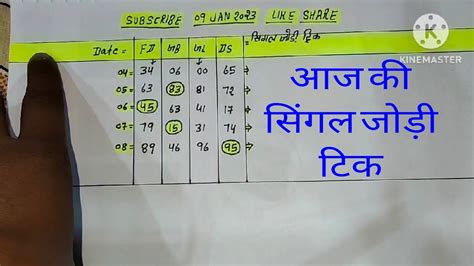 SUBSCRIBE 09 JAN 2023 LIKE SHARE
Date = FD GB GL DS = सिंगल जोड़ी ट्रिक
04= 34 06 00 65 →
05= 63 83 81 72 →
06= 45 63 41 17 →
07= 79 15 31 74 →
08= 89 46 96 95 →
आज की
सिंगल जोड़ी
टिक
KINEMASTER